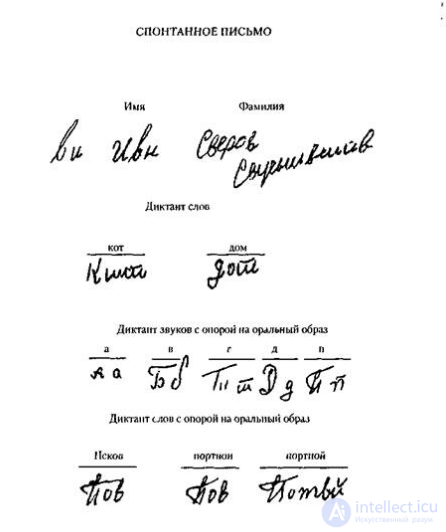 СПОНТАННОЕ ПИСЬМО
Имя Фамилия
ви Ивн Сверов
Диктант слов
кот дом
дот
Диктант звуков с опорой на оральный образ
а в г д п
А а Б б Т п т D д П п
Диктант слов с опорой на оральный образ
Псков портнои портной
Пов Пов Потвй
intellect.icu
Искусственный разум